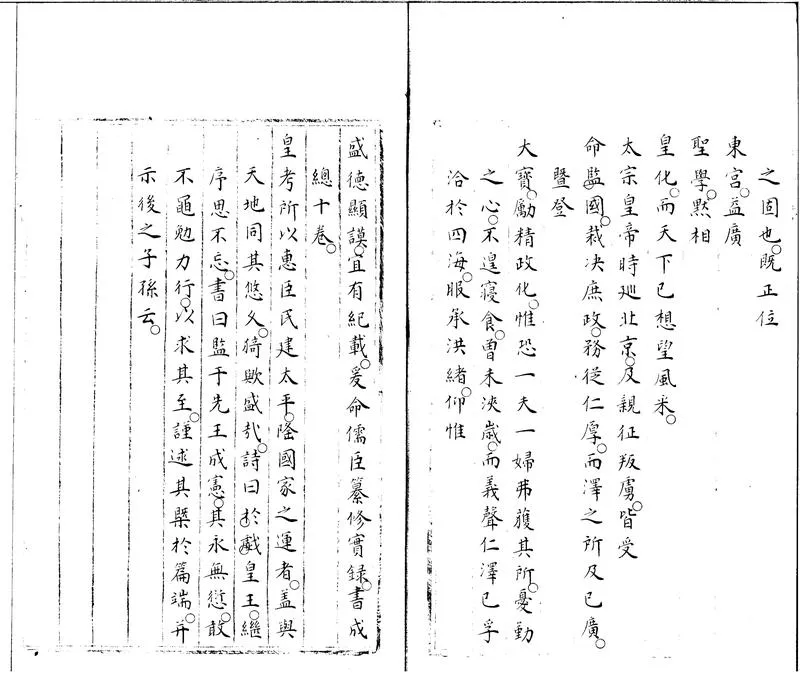 之固也既正位
東宮益廣
聖學默相
皇化而天下已想望風采
太宗皇帝時廵北京及親征叛虜皆受
命監國裁决庶政務從仁厚而澤之所及已廣
暨登
大寶勵精政化惟恐一夫一婦弗獲其所憂勤
之心不遑寢食曾未浹歲而義聲仁澤已孚
洽於四海服承洪緒仰惟
盛德顯謨宜有紀載爰命儒臣纂修實録書成
總十卷
皇考所以惠臣民建太平隆國家之運者盖與
天地同其悠久猗歟盛㢤詩曰於戲皇王繼
序思不忘書曰監于先王成憲其永無愆敢
不黽勉力行以求其至謹述其槩於篇端并
示後之子孫云